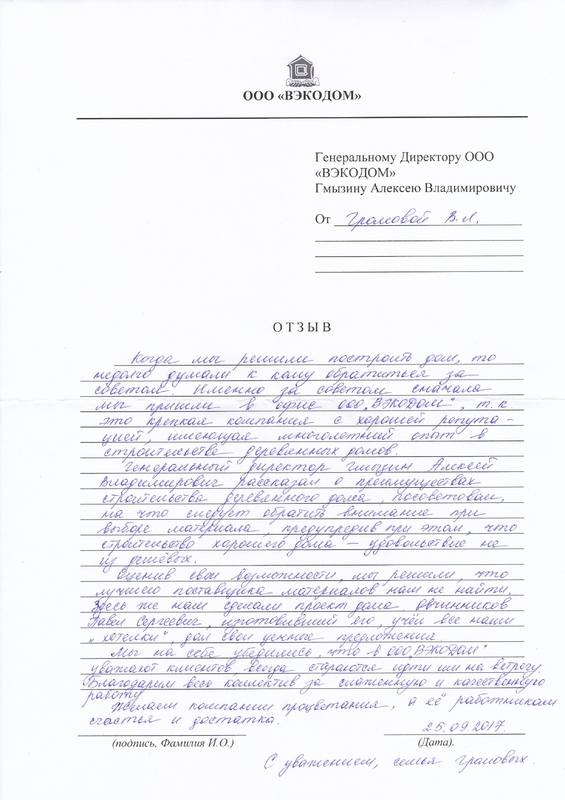 ООО «ВЭКОДОМ»
Генеральному Директору ООО
«ВЭКОДОМ»
Гмызину Алексею Владимировичу
От Громовой В.Л.
ОТЗЫВ
Когда мы решили построить дом, то
недолго думали к кому обратиться за
советом. Именно за советом сначала
мы пришли в офис ООО „ВЭКОДОМ", т.к
это крепкая компания с хорошей репута-
цией, имеющая многолетний опыт в
строительстве деревянных домов.
Генеральный директор Гмызин Алексей
Владимирович рассказал о преимуществах
строительства деревянного дома, посоветовал,
на что следует обратить внимание при
выборе материала, предупредив при этом, что
строительство хорошего дома – удовольствие не
из дешёвых.
Оценив свои возможности, мы решили, что
лучшего поставщика материалов нам не найти.
Здесь же нам сделали проект дома. Овчинников
Павел Сергеевич, изготовивший его, учёл все наши
„хотелки", дал свои ценные предложения.
Мы на себе убедились, что в ООО „ВЭКОДОМ"
уважают клиентов, всегда стараются идти им на встречу.
Благодарим весь коллектив за слаженную и качественную
работу.
Желаем компании процветания, а её работникам
счастья и достатка.
25.09.2017.
(подпись, Фамилия И.О.) (Дата).
С уважением, семья Громовых.